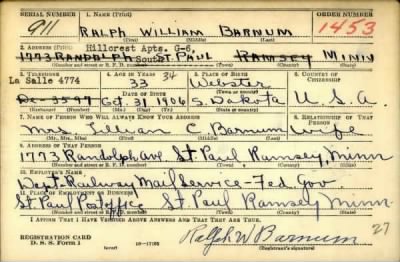 SERIAL NUMBER 1. NAME (Print) ORDER NUMBER
911 RALPH WILLIAM BARNUM 1453
(First) (Middle) (Last)
2. ADDRESS (Print) Hillcrest Apts. G-6,
1773 RANDOLPH South ST PAUL RAMSEY MINN
(Number and street or R. F. D. number) (Town) (County) (State)
3. TELEPHONE 4. AGE IN YEARS 5. PLACE OF BIRTH 6. COUNTRY OF CITIZENSHIP
La Salle 4774 33 34 Webster
De-3597 Oct. 31 1906 S. Dakota U.S.A.
7. NAME OF PERSON WHO WILL ALWAYS KNOW YOUR ADDRESS 8. RELATIONSHIP OF THAT PERSON
Mrs. Lillian C Barnum Wife
(Mr., Mrs., Miss) (First) (Middle) (Last)
9. ADDRESS OF THAT PERSON
1773 Randolph Ave St. Paul, Ramsey, Minn
(Number and street or R. F. D. number) (Town) (County) (State)
10. EMPLOYER'S NAME
Mail Service Fed. Gov
11. PLACE OF EMPLOYMENT OR BUSINESS
St Paul Postoffice St Paul Ramsey Minn
(Number and street or R. F. D. number) (Town) (County) (State)
I AFFIRM THAT I HAVE VERIFIED ABOVE ANSWERS AND THAT THEY ARE TRUE.
REGISTRATION CARD
D. S. S. Form 1 Ralph W Barnum 27
(Registrant's signature)